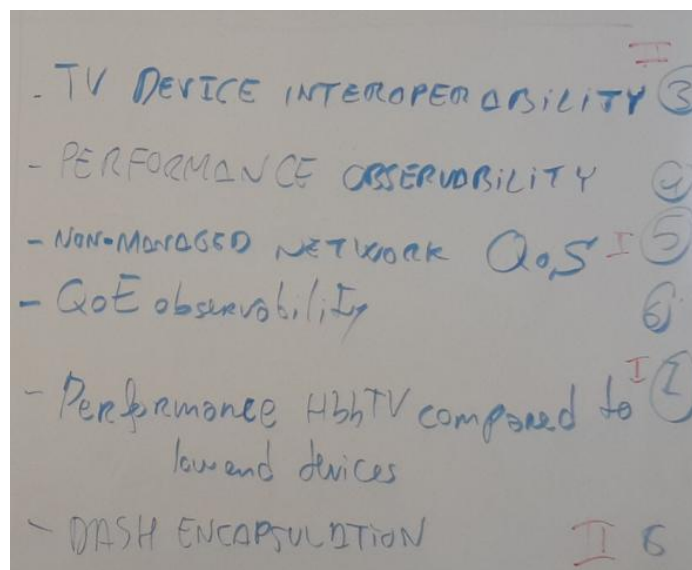 II
- TV DEVICE INTEROPERABILITY 3
- PERFORMANCE OBSERVABILITY
- NON-MANAGED NETWORK QoS I 5
- QoE observability 6
- Performance HbbTV compared to I
low end devices
- DASH ENCAPSULATION II 6